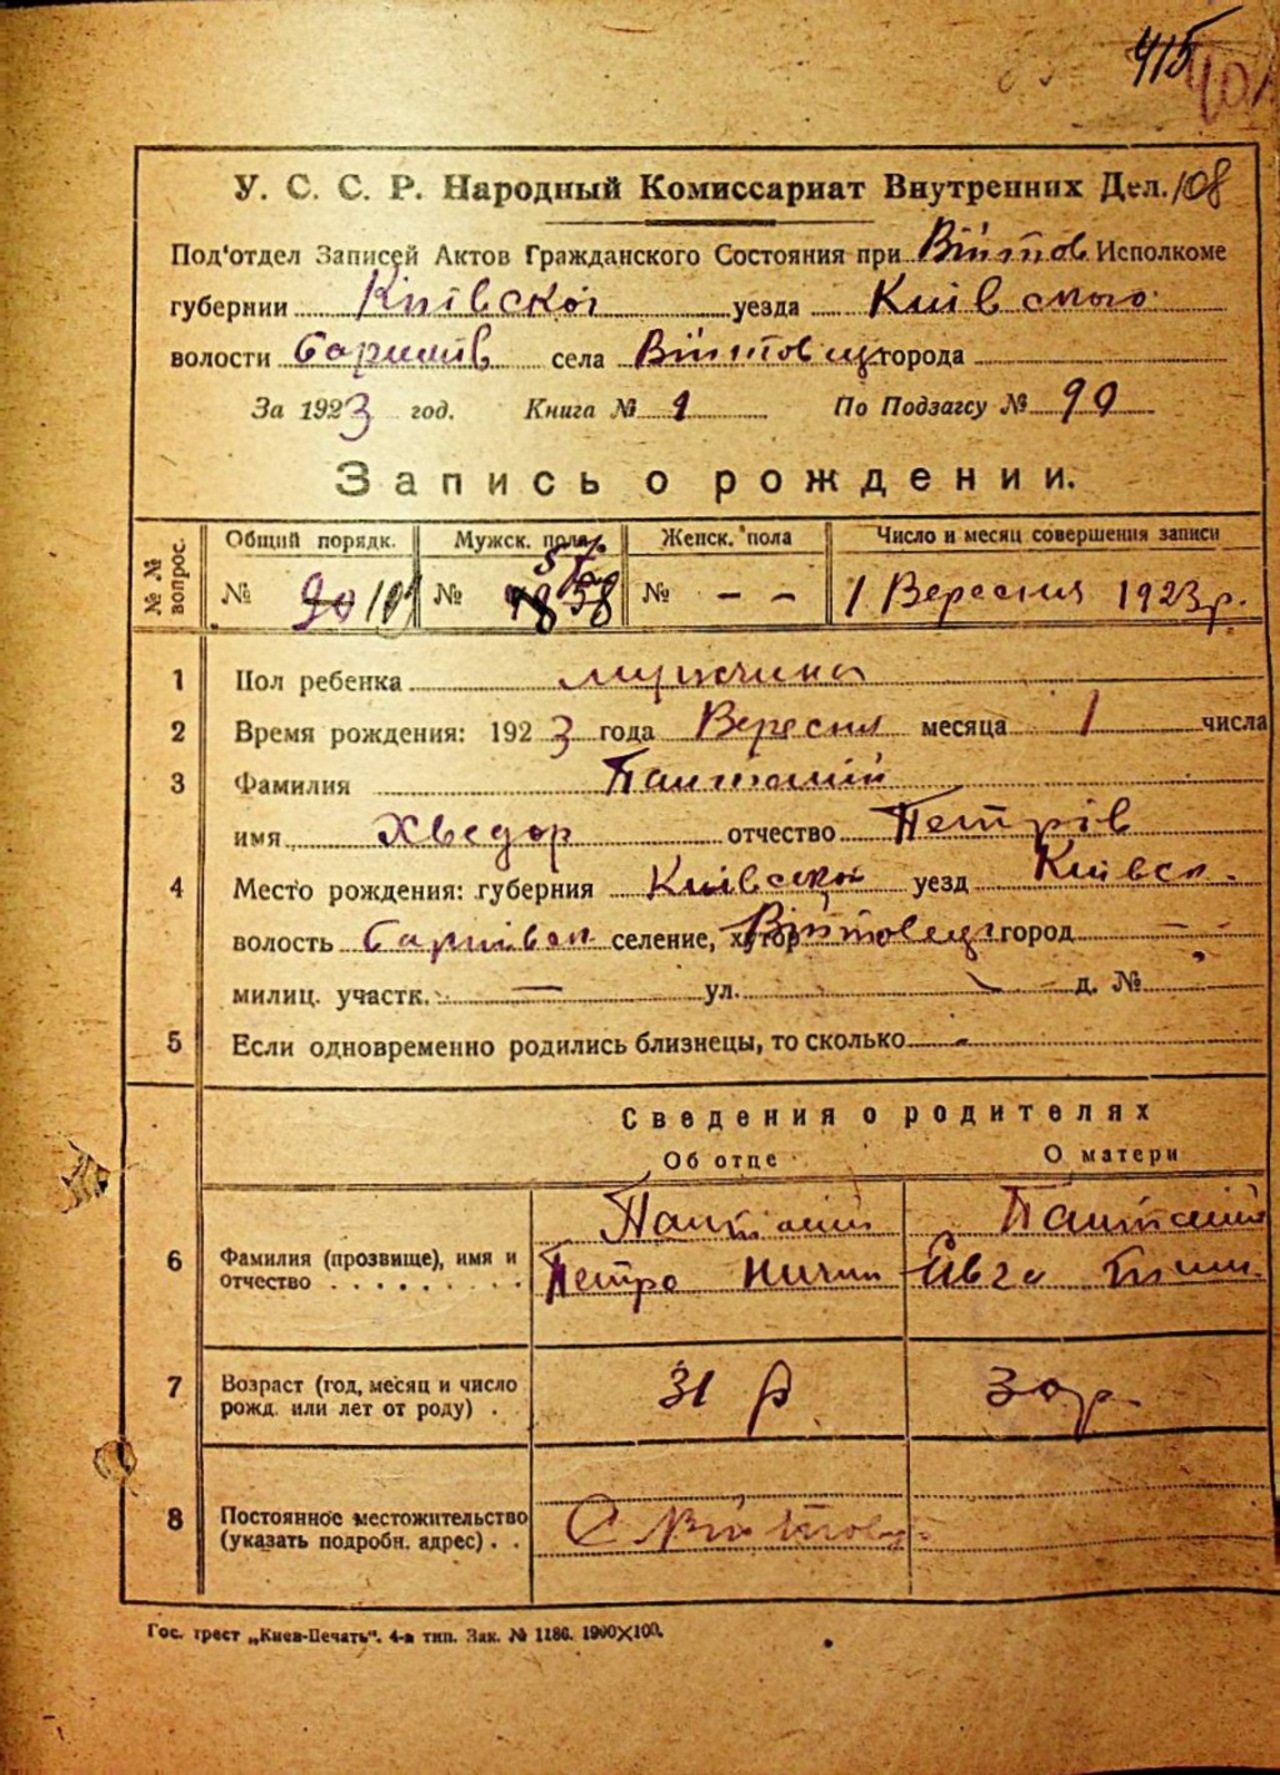 415
У. С. С. Р. Народный Комиссариат Внутренних Дел. 108
Под'отдел Записей Актов Гражданского Состояния при Війтов Исполкоме
губернии Київскої уезда Київского
волости села Війтовці города
За 1923 год. Книга № 1 По Подзагсу № 90
Запись о рождении.
№ № вопрос. Общий порядк. Мужск. пола Женск. пола Число и месяц совершения записи
№ 90 № 58 № — — 1 Вересня 1923 р.
1 Пол ребенка мужчина
2 Время рождения: 1923 года Вересня месяца 1 числа
3 Фамилия
имя Хведор отчество Петрів
4 Место рождения: губерния Київскої уезд Київск.
волость селение, хутор Війтовці город — -
милиц. участк. — ул. д. №
5 Если одновременно родились близнецы, то сколько -
Сведения о родителях
Об отце О матери
6 Фамилия (прозвище), имя и
отчество . . . . . . . . . Петро Ничип
7 Возраст (год, месяц и число 31 р 30 р.
рожд. или лет от роду) .
8 Постоянное местожительство С Війтовці
(указать подробн. адрес) . .
Гос. трест „Киев-Печать". 4-я тип. Зак. № 1186. 1900×100.